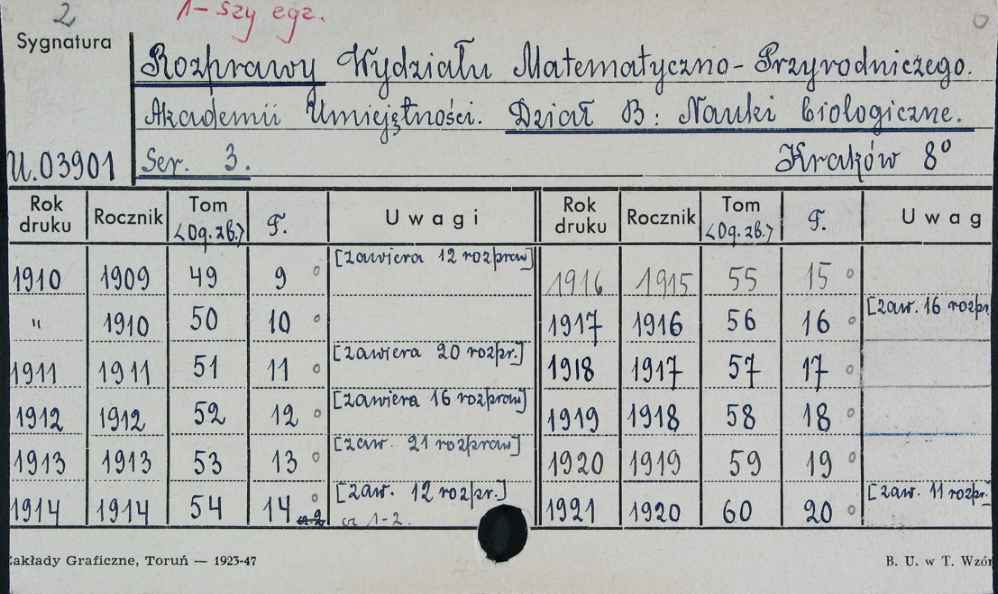 2 1-szy egz.
Sygnatura
Rozprawy Wydziału Matematyczno-Przyrodniczego.
Akademii Umiejętności. Dział B: Nauki biologiczne.
U.03901 Ser. 3. Kraków 8°
Rok druku Rocznik Tom <Og. zb.> T. Uwagi Rok druku Rocznik Tom <Og. zb.> T. Uwag
1910 1909 49 9 [zawiera 12 rozpraw] 1916 1915 55 15
" 1910 50 10 1917 1916 56 16 [zaw. 16 rozpr.
1911 1911 51 11 [zawiera 20 rozpr.] 1918 1917 57 17
1912 1912 52 12 [zawiera 16 rozpraw] 1919 1918 58 18
1913 1913 53 13 [zaw. 21 rozpraw] 1920 1919 59 19
1914 1914 54 14 [zaw. 12 rozpr.] 1921 1920 60 20 [zaw. 11 rozpr.
cz 1-2.
Zakłady Graficzne, Toruń — 1923-47 B. U. w T. Wzór